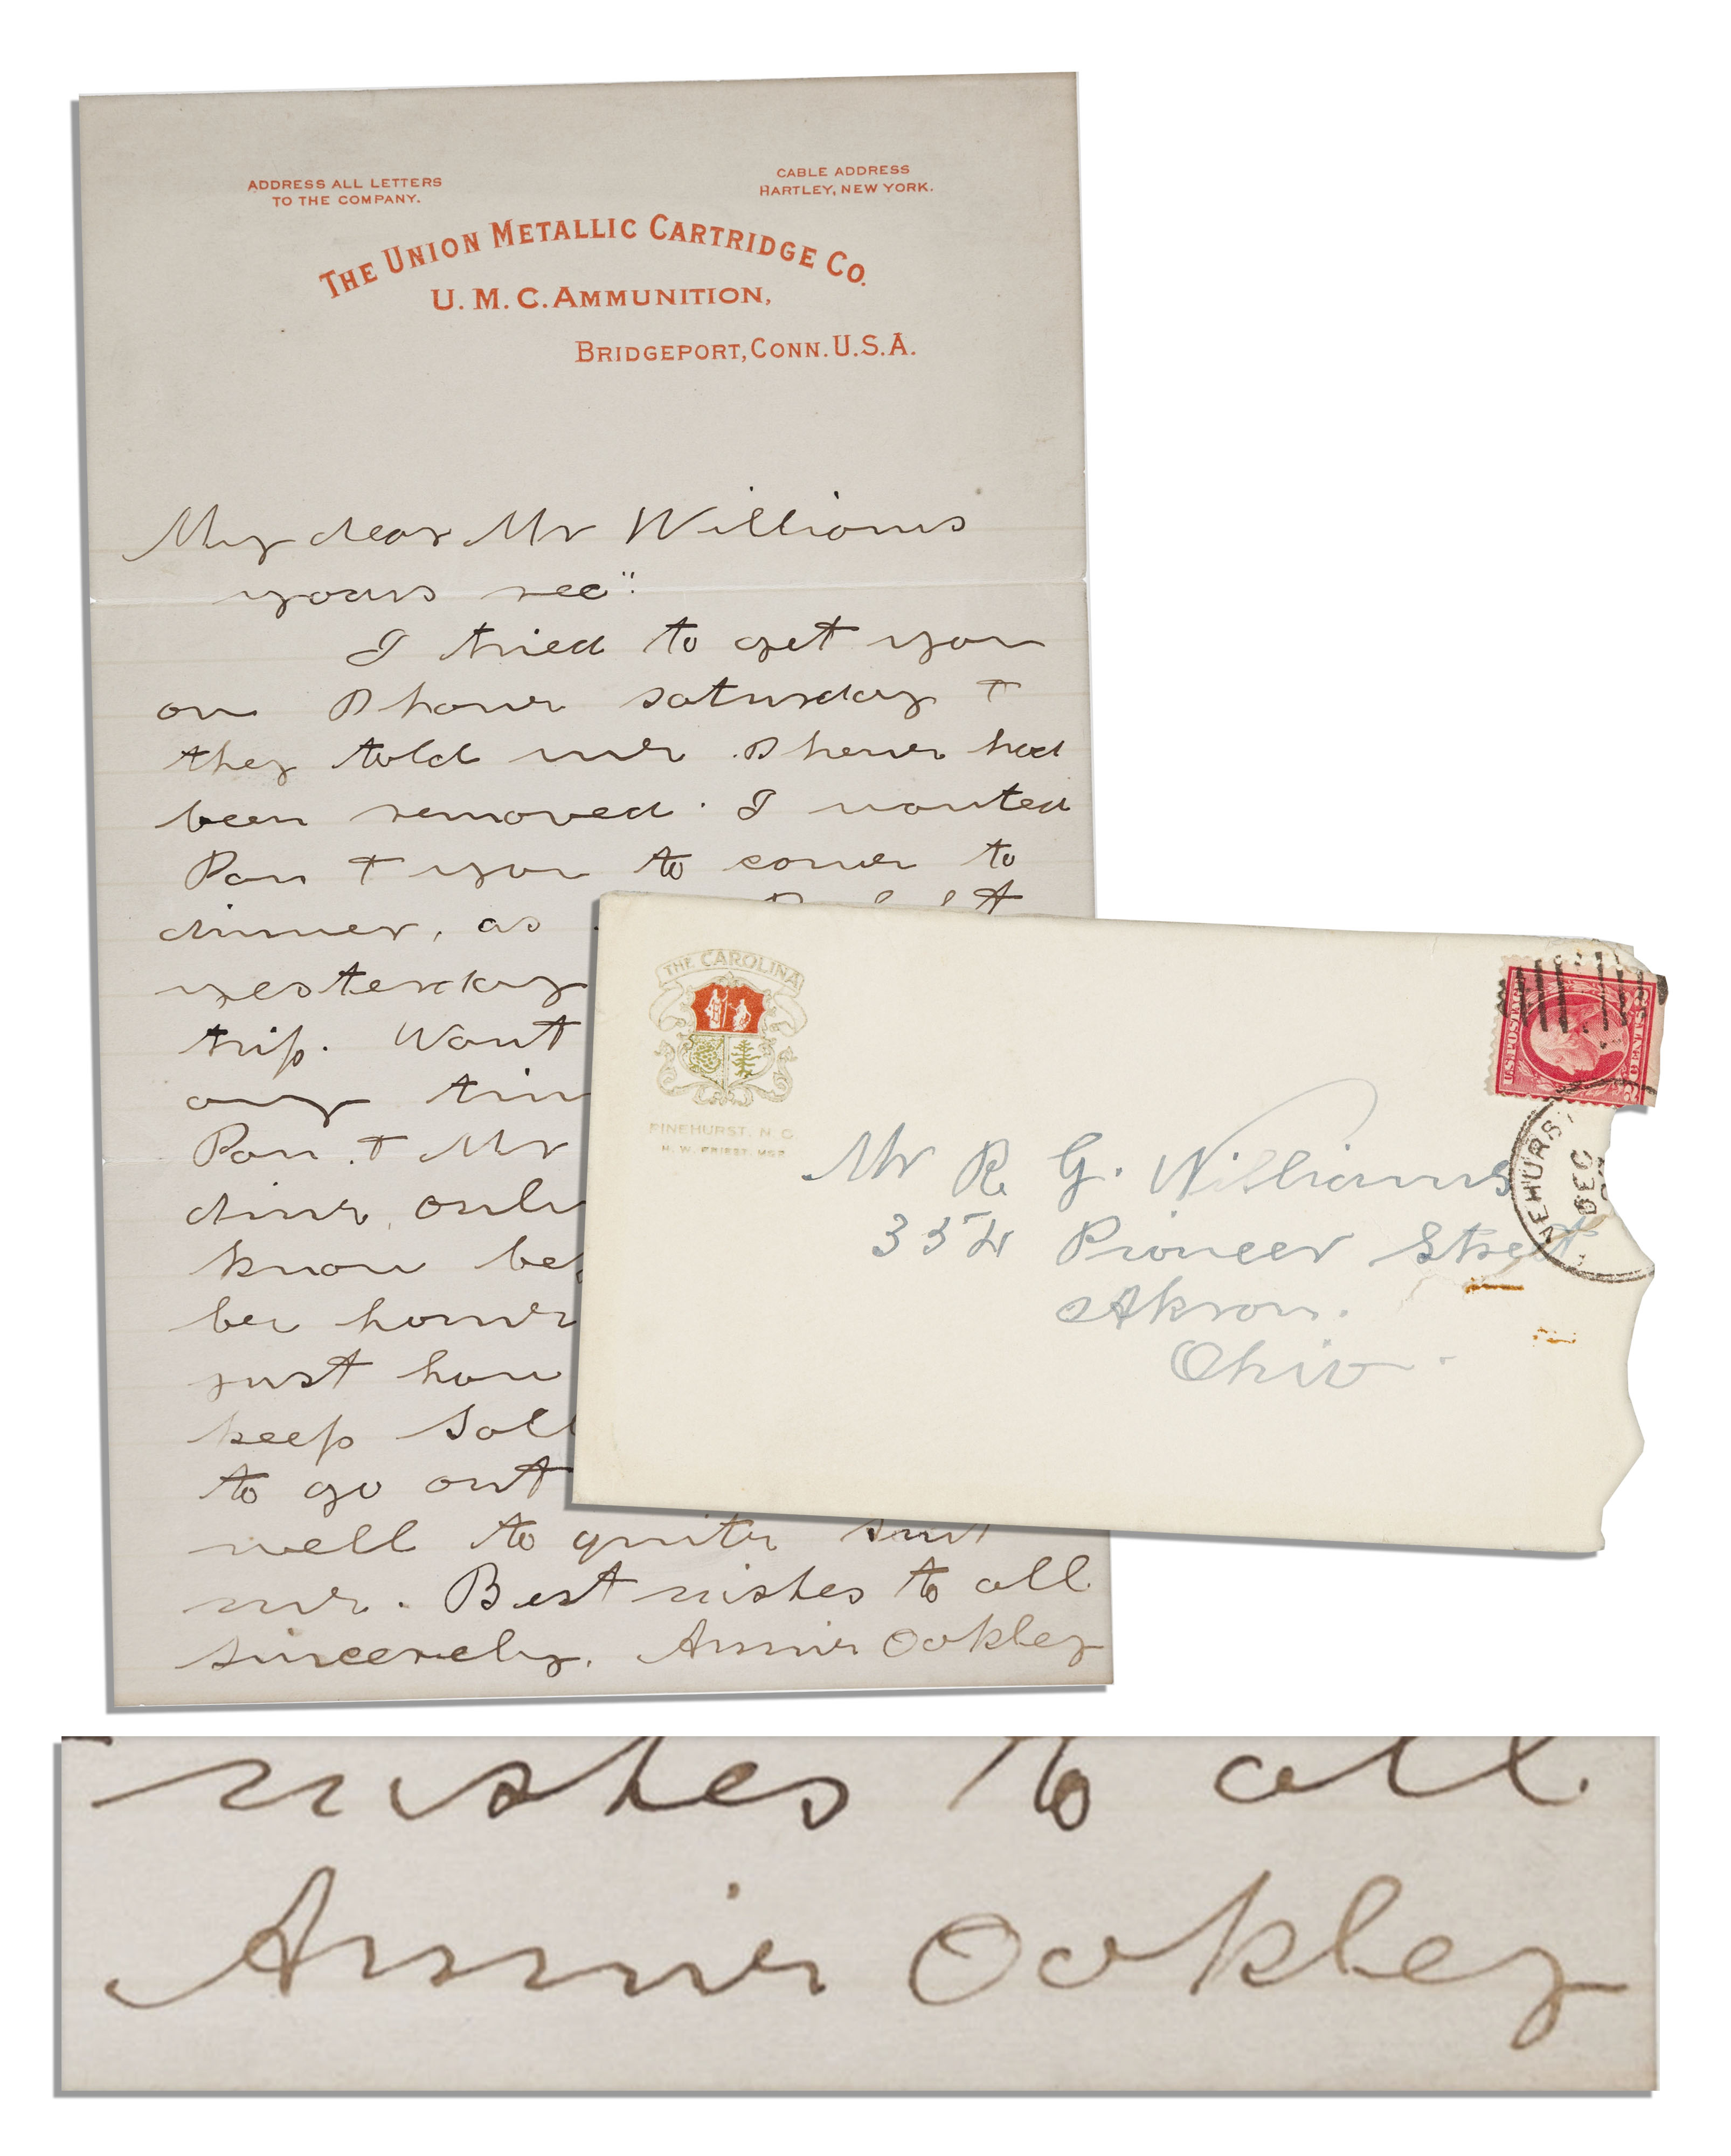 ADDRESS ALL LETTERS
TO THE COMPANY.
CABLE ADDRESS
HARTLEY, NEW YORK.
THE UNION METALLIC CARTRIDGE CO.
U. M. C. AMMUNITION,
BRIDGEPORT, CONN. U.S.A.
My dear Mr Williams
yours rec"
I tried to get you
on Phone Saturday +
they told me Phone had
been removed. I wanted
Pan + you to come to
dinner, as
yesterday
trip. Want
any
Pan. + Mr
dine, only
know
be home
just how
keep
to go out
well to quite suit
me. Best wishes to all
sincerely. Annie Oakley
THE CAROLINA
PINEHURST, N. C.
H. W. PRIEST, MGR
U.S. POSTAGE
2 CENTS 2
NEHURST
DEC
Mr R. G. Williams
354 Pioneer Street
Akron.
Ohio.
wishes to all.
Annie Oakley